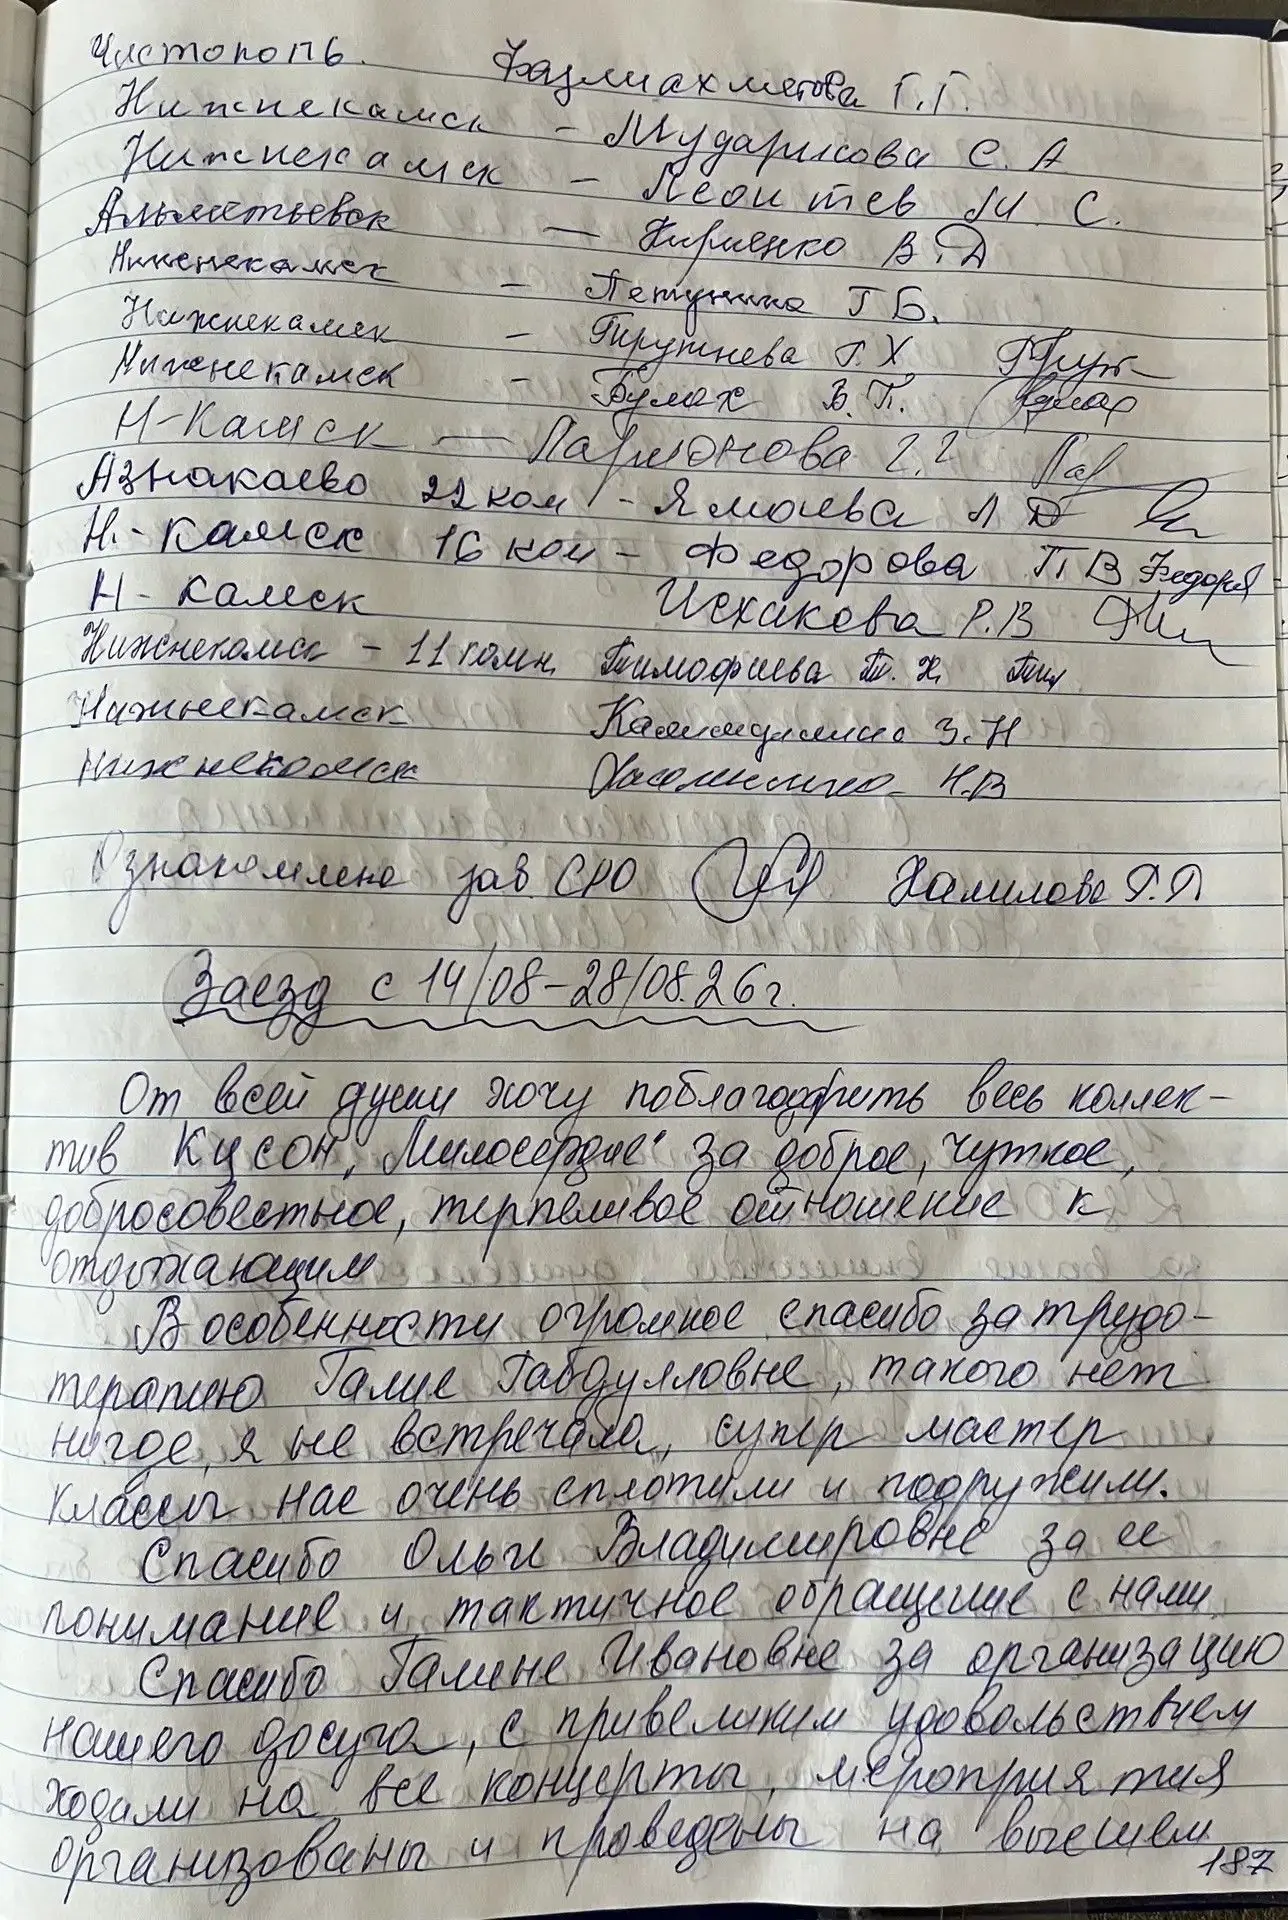 Чистополь. Фазлиахметова Г.Г.
Нижнекамск – Мударисова С. А
Нижнекамск – Леонтев М С.
Альметьевск — Кириенко В.Д
Нижнекамск – Петунина Г Б.
Нижнекамск – Трутнева Г. Х.
Нижнекамск – Булах В. П.
Н-Камск — Ларионова Г.Г
Азнакаево 22 ком – Ямаева Л Д
Н.-Камск 16 ком – Федорова П В
Н - Камск Исхакова Р.В
Нижнекамск – 11 комн. Тимофиева Т. Н.
Нижнекамск З. Н
Нижнекамск Н.В
Ознакомлена зав. СРО Халилова Г.П
Заезд с 14/08–28/08.26г.
От всей души хочу поблагодарить весь коллек-
тив Кцсон „Милосердие" за доброе, чуткое,
добросовестное, терпеливое отношение к
отдыхающим
В особенности огромное спасибо за трудо-
терапию Галие Габдулловне, такого нет
нигде, я не встречала, супер мастер
классы нас очень сплотили и подружили.
Спасибо Ольги Владимировне за ее
понимание и тактичное обращение с нами
Спасибо Галине Ивановне за организацию
нашего досуга, с превеликим удовольствием
ходили на все концерты, мероприятия
организованы и проведены на высшем
187